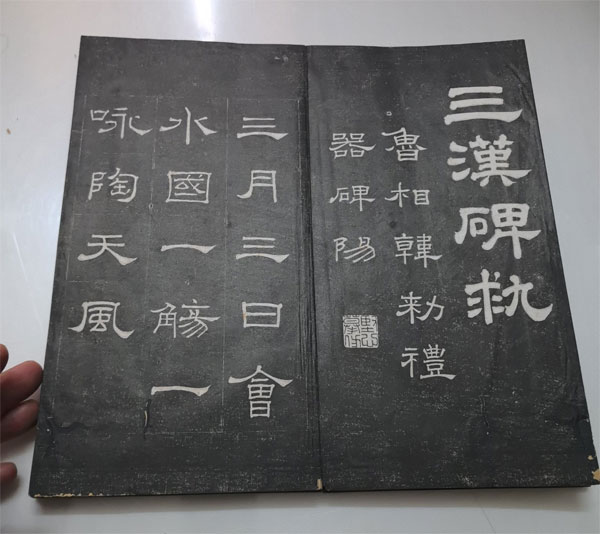 三漢碑
魯相韓勑禮
器碑陽
三月三日會
水國一觴一
咏陶天風